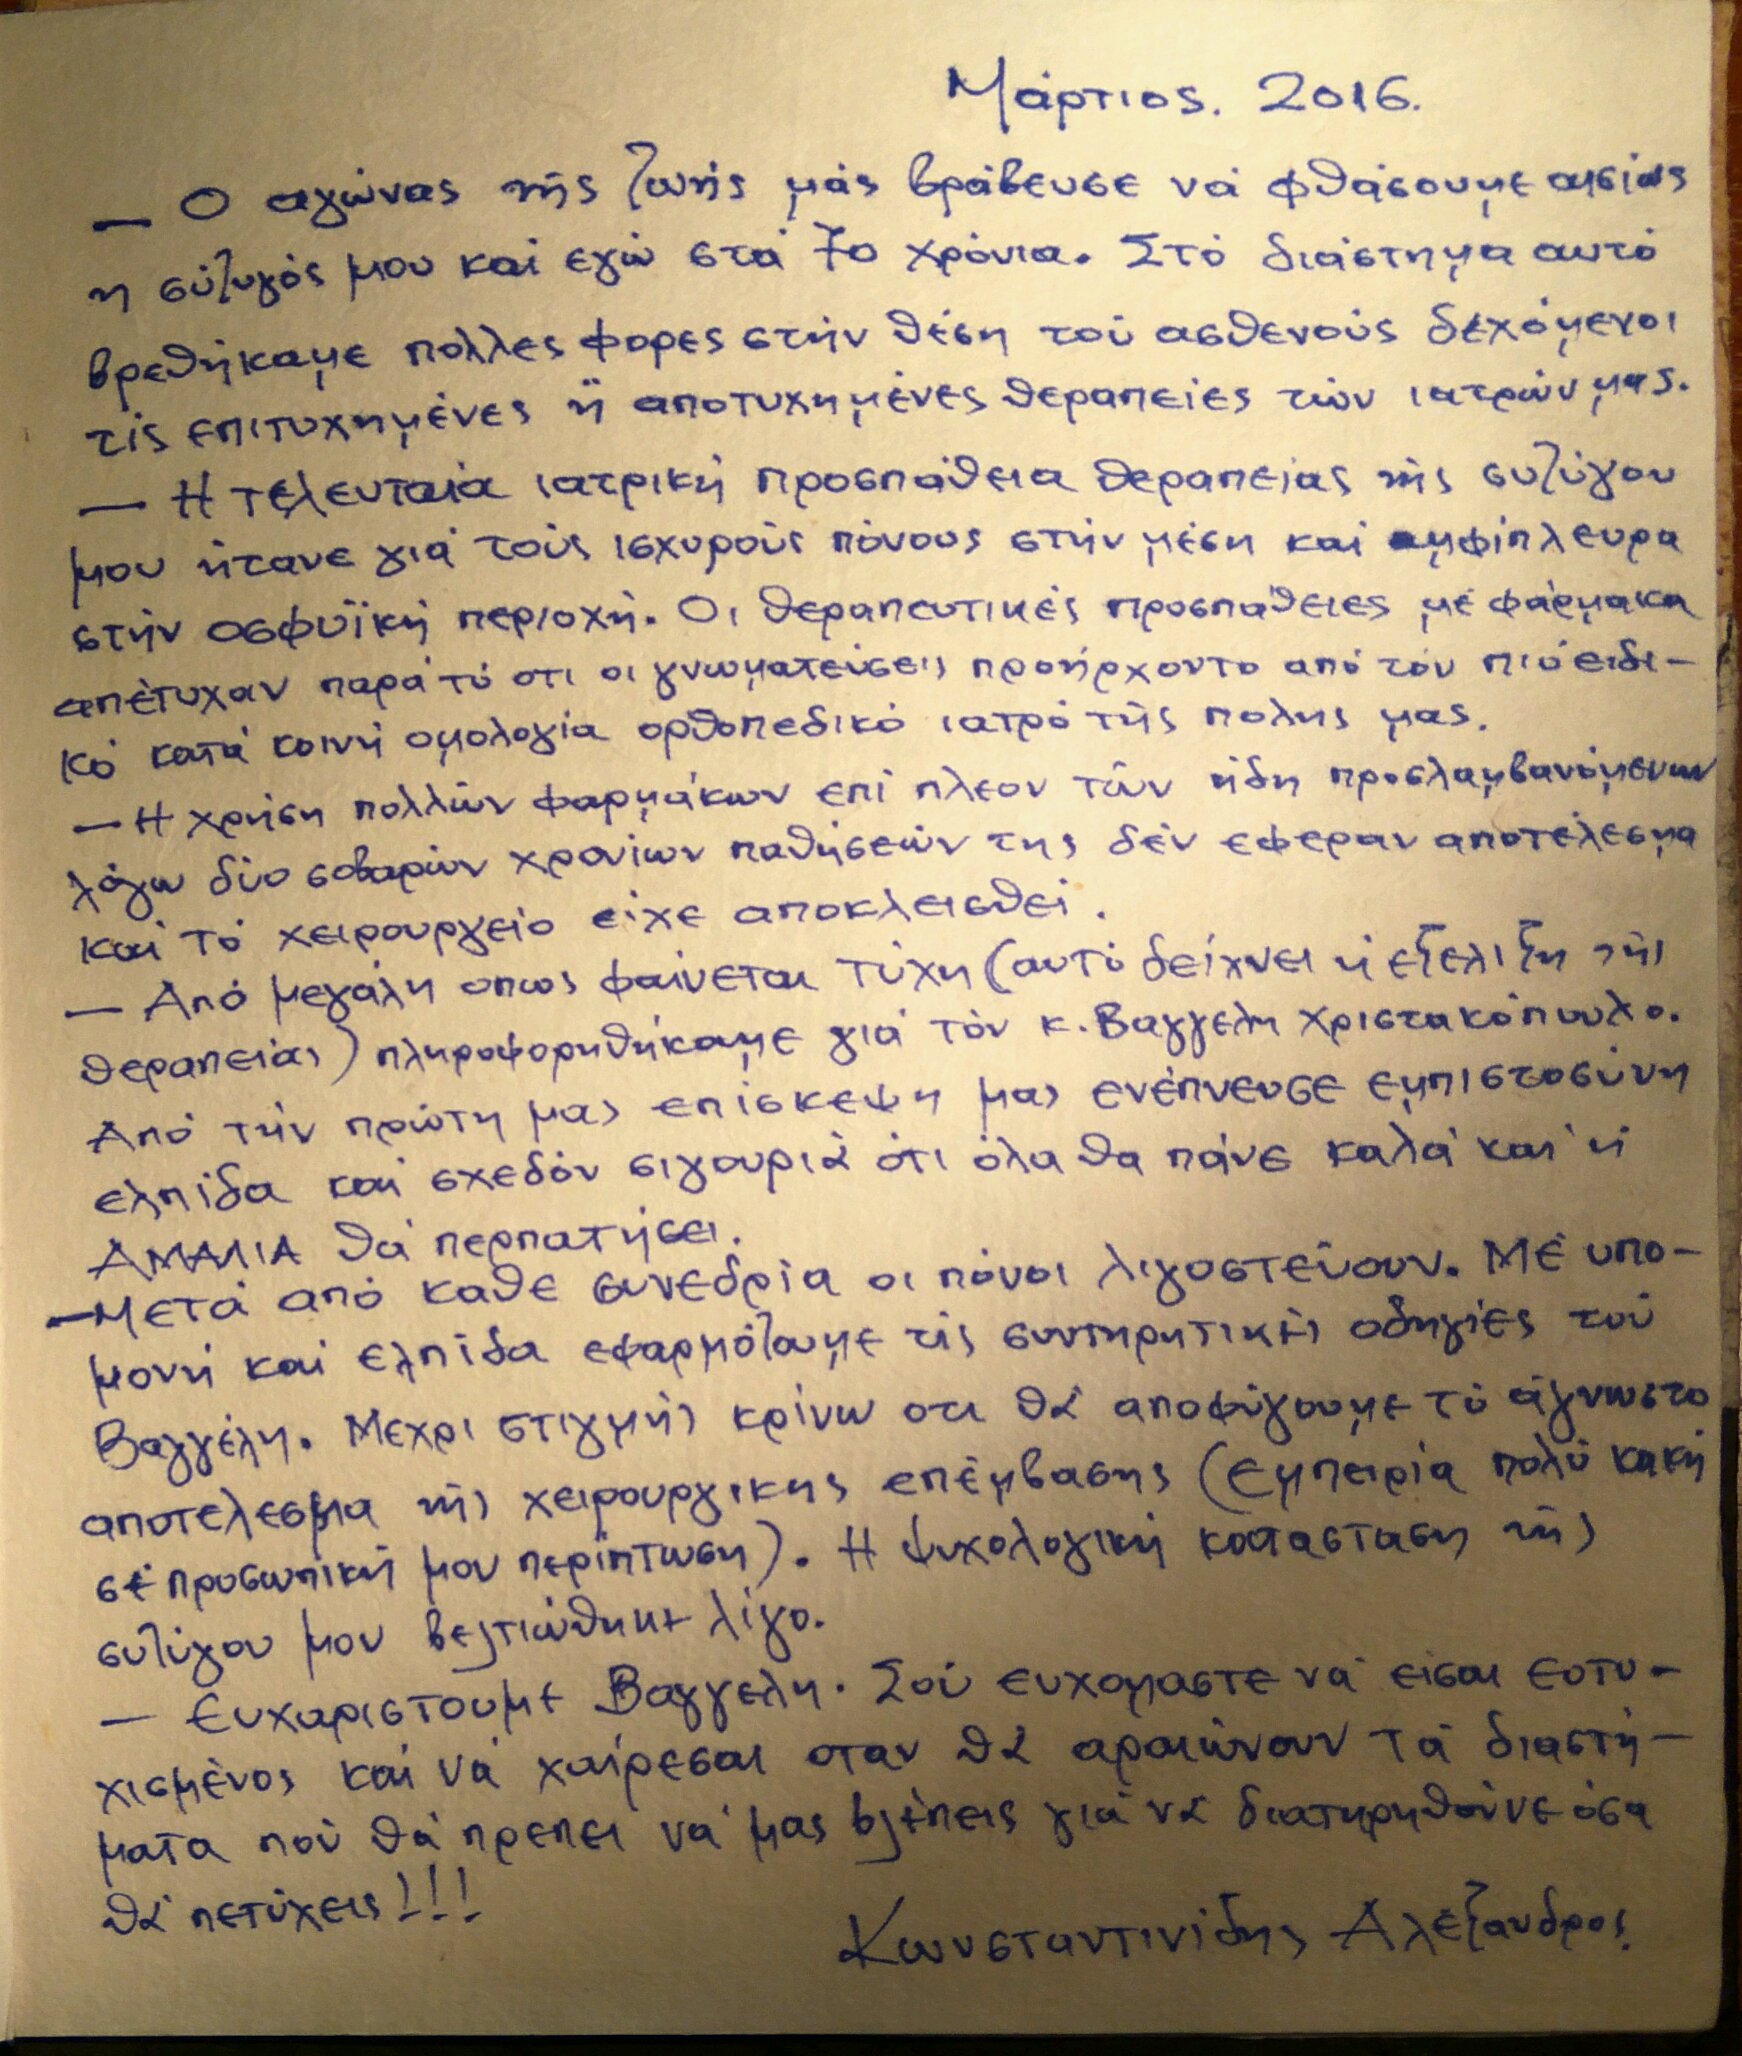 Μάρτιος. 2016.
— Ο αγώνας τής ζωής μάς βράβευσε νά φθάσουμε αισίως
η σύζυγός μου καί εγώ στά 70 χρόνια. Στό διάστημα αυτό
βρεθήκαμε πολλες φορες στήν θέση τού ασθενούς δεχόμενοι
τίς επιτυχημένες ή αποτυχημένες θεραπείες τών ιατρών μας.
— Η τελευταία ιατρική προσπάθεια θεραπείας τής συζύγου
μου ήτανε γιά τούς ισχυρούς πόνους στήν μέση καί αμφίπλευρα
στήν οσφυϊκή περιοχή. Οι θεραπευτικές προσπάθειες μέ φάρμακα
απέτυχαν παρά τό οτι οι γνωματεύσεις προήρχοντο από τόν πιό ειδι-
κό κατά κοινή ομολογία ορθοπεδικό ιατρό τής πολης μας.
— Η χρήση πολλών φαρμάκων επί πλεον τών ήδη προσλαμβανόμενων
λόγω δύο σοβαρών χρονίων παθήσεών της δέν εφεραν αποτέλεσμα
καί τό χειρουργείο είχε αποκλεισθεί.
— Από μεγάλη οπως φαίνεται τύχη (αυτό δείχνει ή εξελιξη τής
θεραπείας) πληροφορηθήκαμε γιά τόν κ. Βαγγελη Χριστακόπουλο.
Από τήν πρώτη μας επίσκεψη μας ενέπνευσε εμπιστοσύνη
ελπίδα καί σχεδόν σιγουριά ότι όλα θα πάνε καλά καί ή
ΑΜΑΛΙΑ θά περπατήσει.
— Μετά από καθε συνεδρία οι πόνοι λιγοστεύουν. Μέ υπο-
μονή καί ελπίδα εφαρμόζουμε τίς συντηρητικές οδηγίες τού
Βαγγέλη. Μεχρι στιγμής κρίνω οτι θά αποφύγουμε τό άγνωστο
αποτελεσμα τής χειρουργικης επέμβασης (Εμπειρία πολύ κακή
σέ προσωπική μου περίπτωση). Η ψυχολογική κατασταση τής
συζύγου μου βελτιώθηκε λίγο.
— Ευχαριστουμε Βαγγελη. Σού ευχομαστε νά είσαι ευτυ-
χισμένος καί νά χαίρεσαι οταν θά αραιώνουν τά διαστή-
ματα πού θά πρεπει νά μας βλέπεις γιά νά διατηρηθούνε όσα
θά πετύχεις!!!
Κωνσταντινίδης Αλέξανδρος.